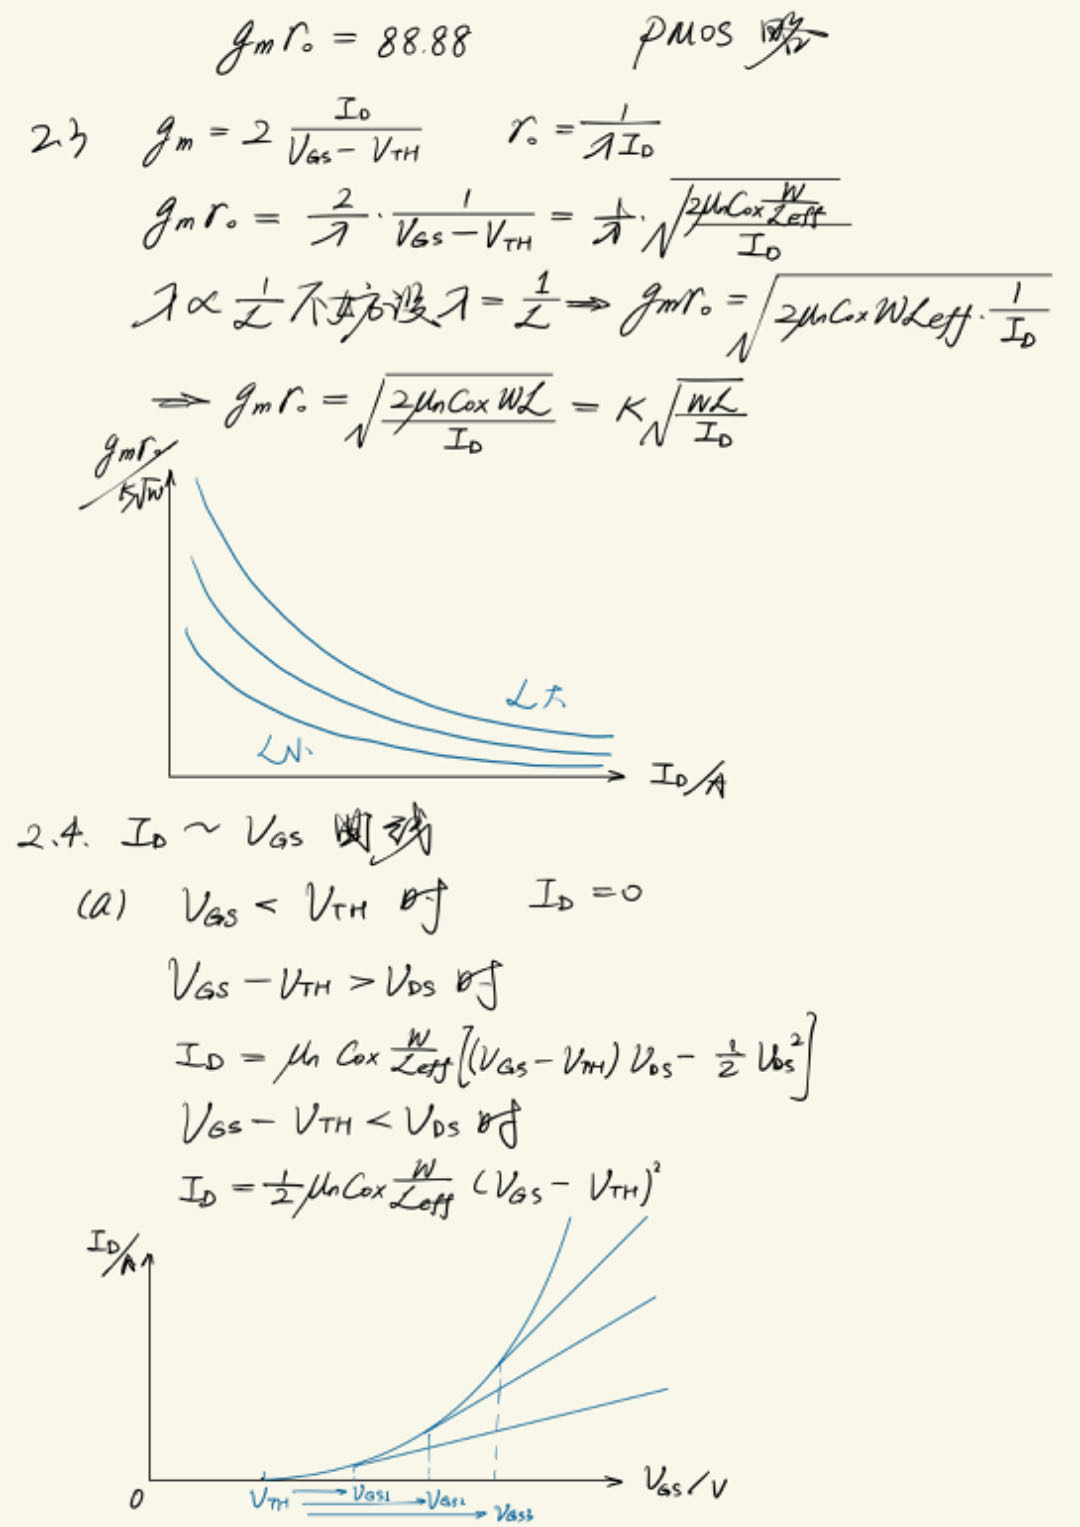 gₘr₀ = 88.88 PMOS 略
2.3 gₘ = 2 I_D/(V_GS − V_TH) r₀ = 1/(λI_D)
gₘr₀ = 2/λ · 1/(V_GS − V_TH) = 1/λ · √(2μₙCox (W/Leff) / I_D)
λ ∝ 1/L 不妨设 λ = 1/L ⇒ gₘr₀ = √(2μₙCox W Leff · 1/I_D)
⇒ gₘr₀ = √(2μₙCox WL / I_D) = K√(WL/I_D)
gₘr₀/K√W
L大
L小
I_D/A
2.4. I_D ~ V_GS 曲线
(a) V_GS < V_TH 时 I_D = 0
V_GS − V_TH > V_DS 时
I_D = μₙ Cox W/Leff [(V_GS − V_TH) V_DS − 1/2 V_DS²]
V_GS − V_TH < V_DS 时
I_D = 1/2 μₙ Cox W/Leff (V_GS − V_TH)²
I_D/A
0 V_TH → V_GS1 → V_GS2 → V_GS3 V_GS/V